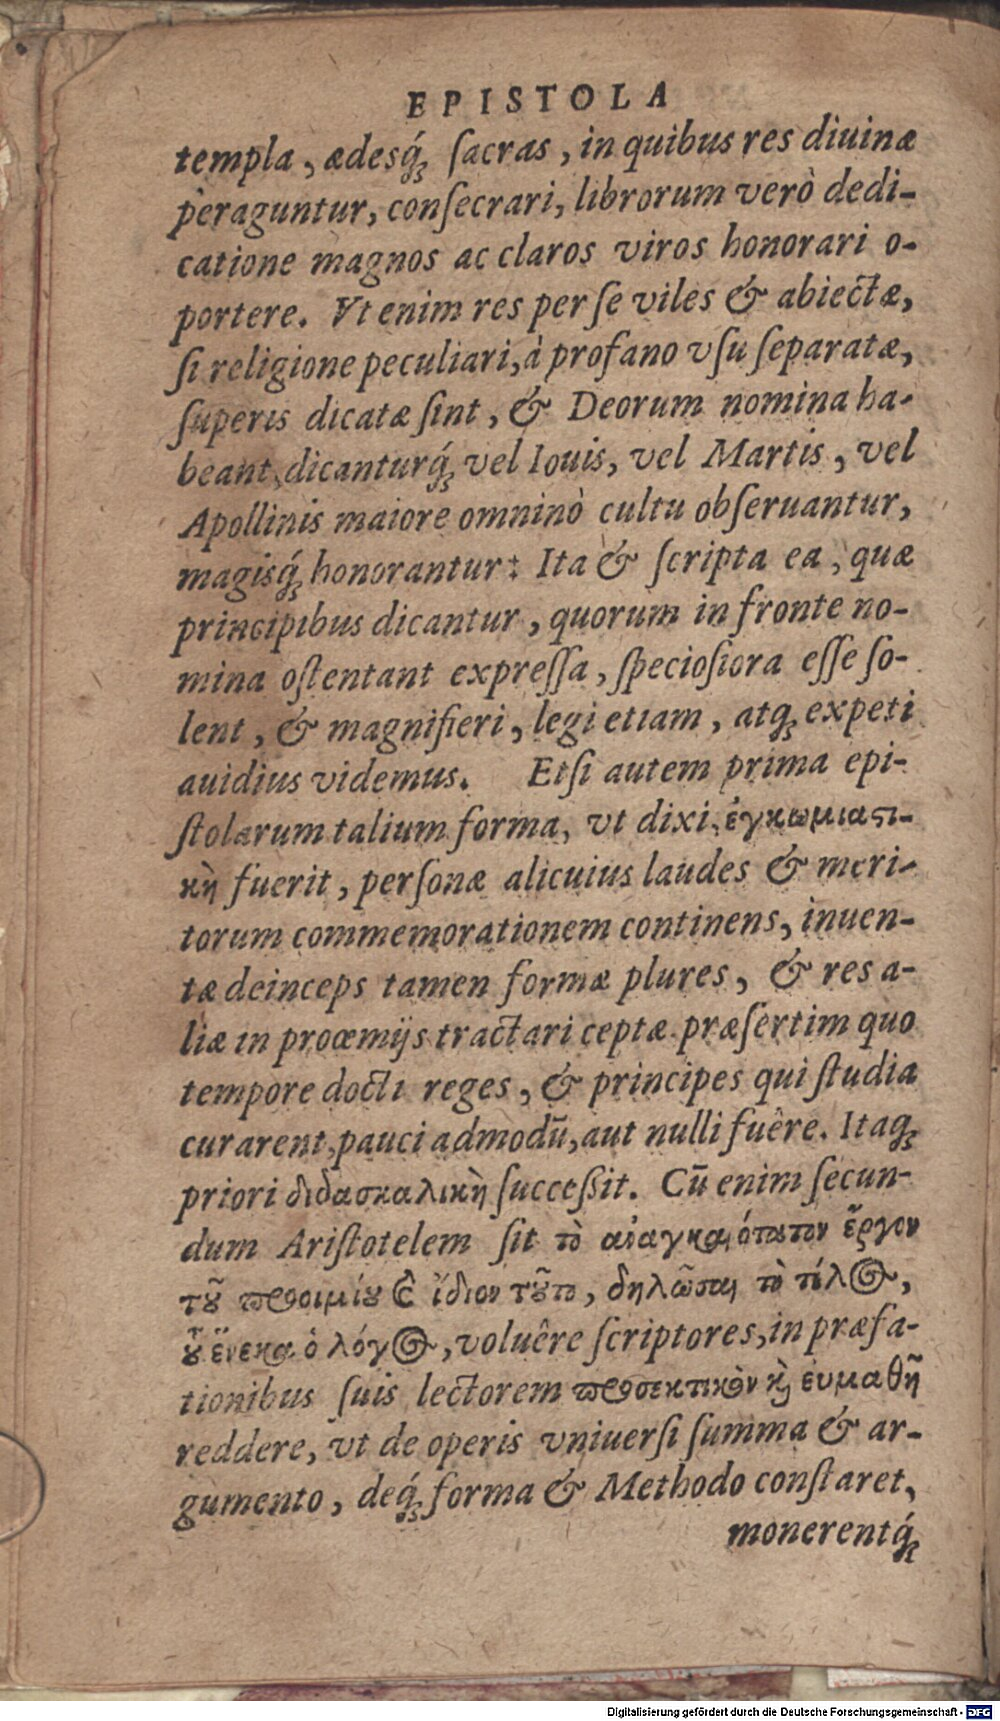 EPISTOLA
templa, ædesq́; sacras, in quibus res diuinæ
peraguntur, consecrari, librorum verò dedi-
catione magnos ac claros viros honorari o-
portere. Vt enim res per se viles & abiectæ,
si religione peculiari, à profano vsu separatæ,
superis dicatæ sint, & Deorum nomina ha-
beant, dicanturq́; vel Iouis, vel Martis, vel
Apollinis maiore omninò cultu obseruantur,
magisq́; honorantur: Ita & scripta ea, quæ
principibus dicantur, quorum in fronte no-
mina ostentant expressa, speciosiora esse so-
lent, & magnifieri, legi etiam, atq; expeti
auidius videmus. Etsi autem prima epi-
stolarum talium forma, vt dixi, ἐγκωμιαςι-
κὴ fuerit, personæ alicuius laudes & meri-
torum commemorationem continens, inuen-
tæ deinceps tamen formæ plures, & res a-
liæ in proœmijs tractari ceptæ præsertim quo
tempore docti reges, & principes qui studia
curarent, pauci admodū, aut nulli fuêre. Itaq;
priori διδασκαλικὴ successit. Cū enim secun-
dum Aristotelem sit τὸ ἀναγκαιότατον ἔργον
τοῦ προοιμίου καὶ ἴδιον τοῦτο, δηλῶσαι τὸ τέλος,
οὗ ἕνεκα ὁ λόγος, voluêre scriptores, in præfa-
tionibus suis lectorem προσεκτικὸν καὶ ἐυμαθῆ
reddere, vt de operis vniuersi summa & ar-
gumento, deq́; forma & Methodo constaret,
monerentq́;
Digitalisierung gefördert durch die Deutsche Forschungsgemeinschaft - DFG